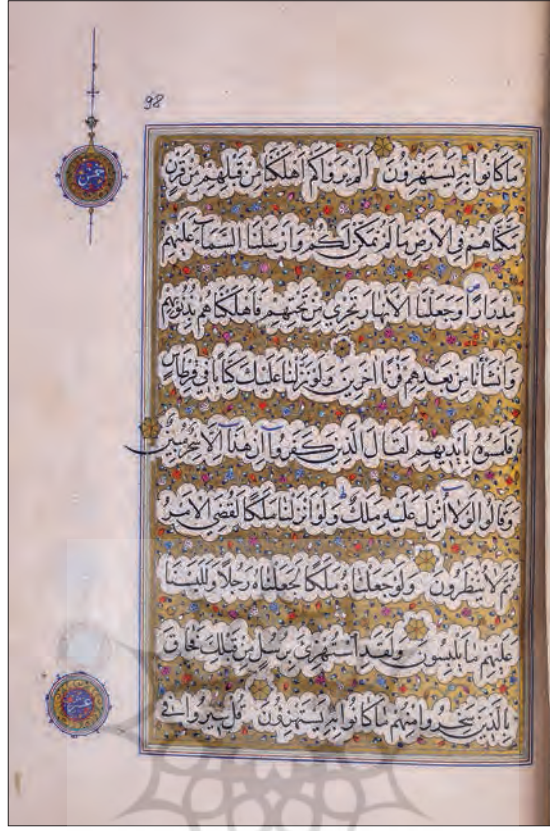 98
خمس
مَا كَانُوا بِهِ يَسْتَهْزِؤُنَ اَلَمْ يَرَوْا كَمْ اَهْلَكْنَا مِنْ قَبْلِهِمْ مِنْ قَرْنٍ
مَكَّنَّاهُمْ فِي الْاَرْضِ مَا لَمْ نُمَكِّنْ لَكُمْ وَاَرْسَلْنَا السَّمَآءَ عَلَيْهِمْ
مِدْرَارًا وَجَعَلْنَا الْاَنْهَارَ تَجْرِي مِنْ تَحْتِهِمْ فَاَهْلَكْنَاهُمْ بِذُنُوبِهِمْ
وَاَنْشَأْنَا مِنْ بَعْدِهِمْ قَرْنًا اٰخَرِينَ وَلَوْ نَزَّلْنَا عَلَيْكَ كِتَابًا فِي قِرْطَاسٍ
فَلَمَسُوهُ بِاَيْدِيهِمْ لَقَالَ الَّذِينَ كَفَرُوآ اِنْ هٰذَآ اِلَّا سِحْرٌ مُبِينٌ
وَقَالُوا لَوْلَآ اُنْزِلَ عَلَيْهِ مَلَكٌ وَلَوْ اَنْزَلْنَا مَلَكًا لَقُضِيَ الْاَمْرُ
ثُمَّ لَا يُنْظَرُونَ وَلَوْ جَعَلْنَاهُ مَلَكًا لَجَعَلْنَاهُ رَجُلًا وَلَلَبَسْنَا
عَلَيْهِمْ مَا يَلْبِسُونَ وَلَقَدِ اسْتُهْزِئَ بِرُسُلٍ مِنْ قَبْلِكَ فَحَاقَ
بِالَّذِينَ سَخِرُوا مِنْهُمْ مَا كَانُوا بِهِ يَسْتَهْزِؤُنَ قُلْ سِيرُوا فِي
عشر